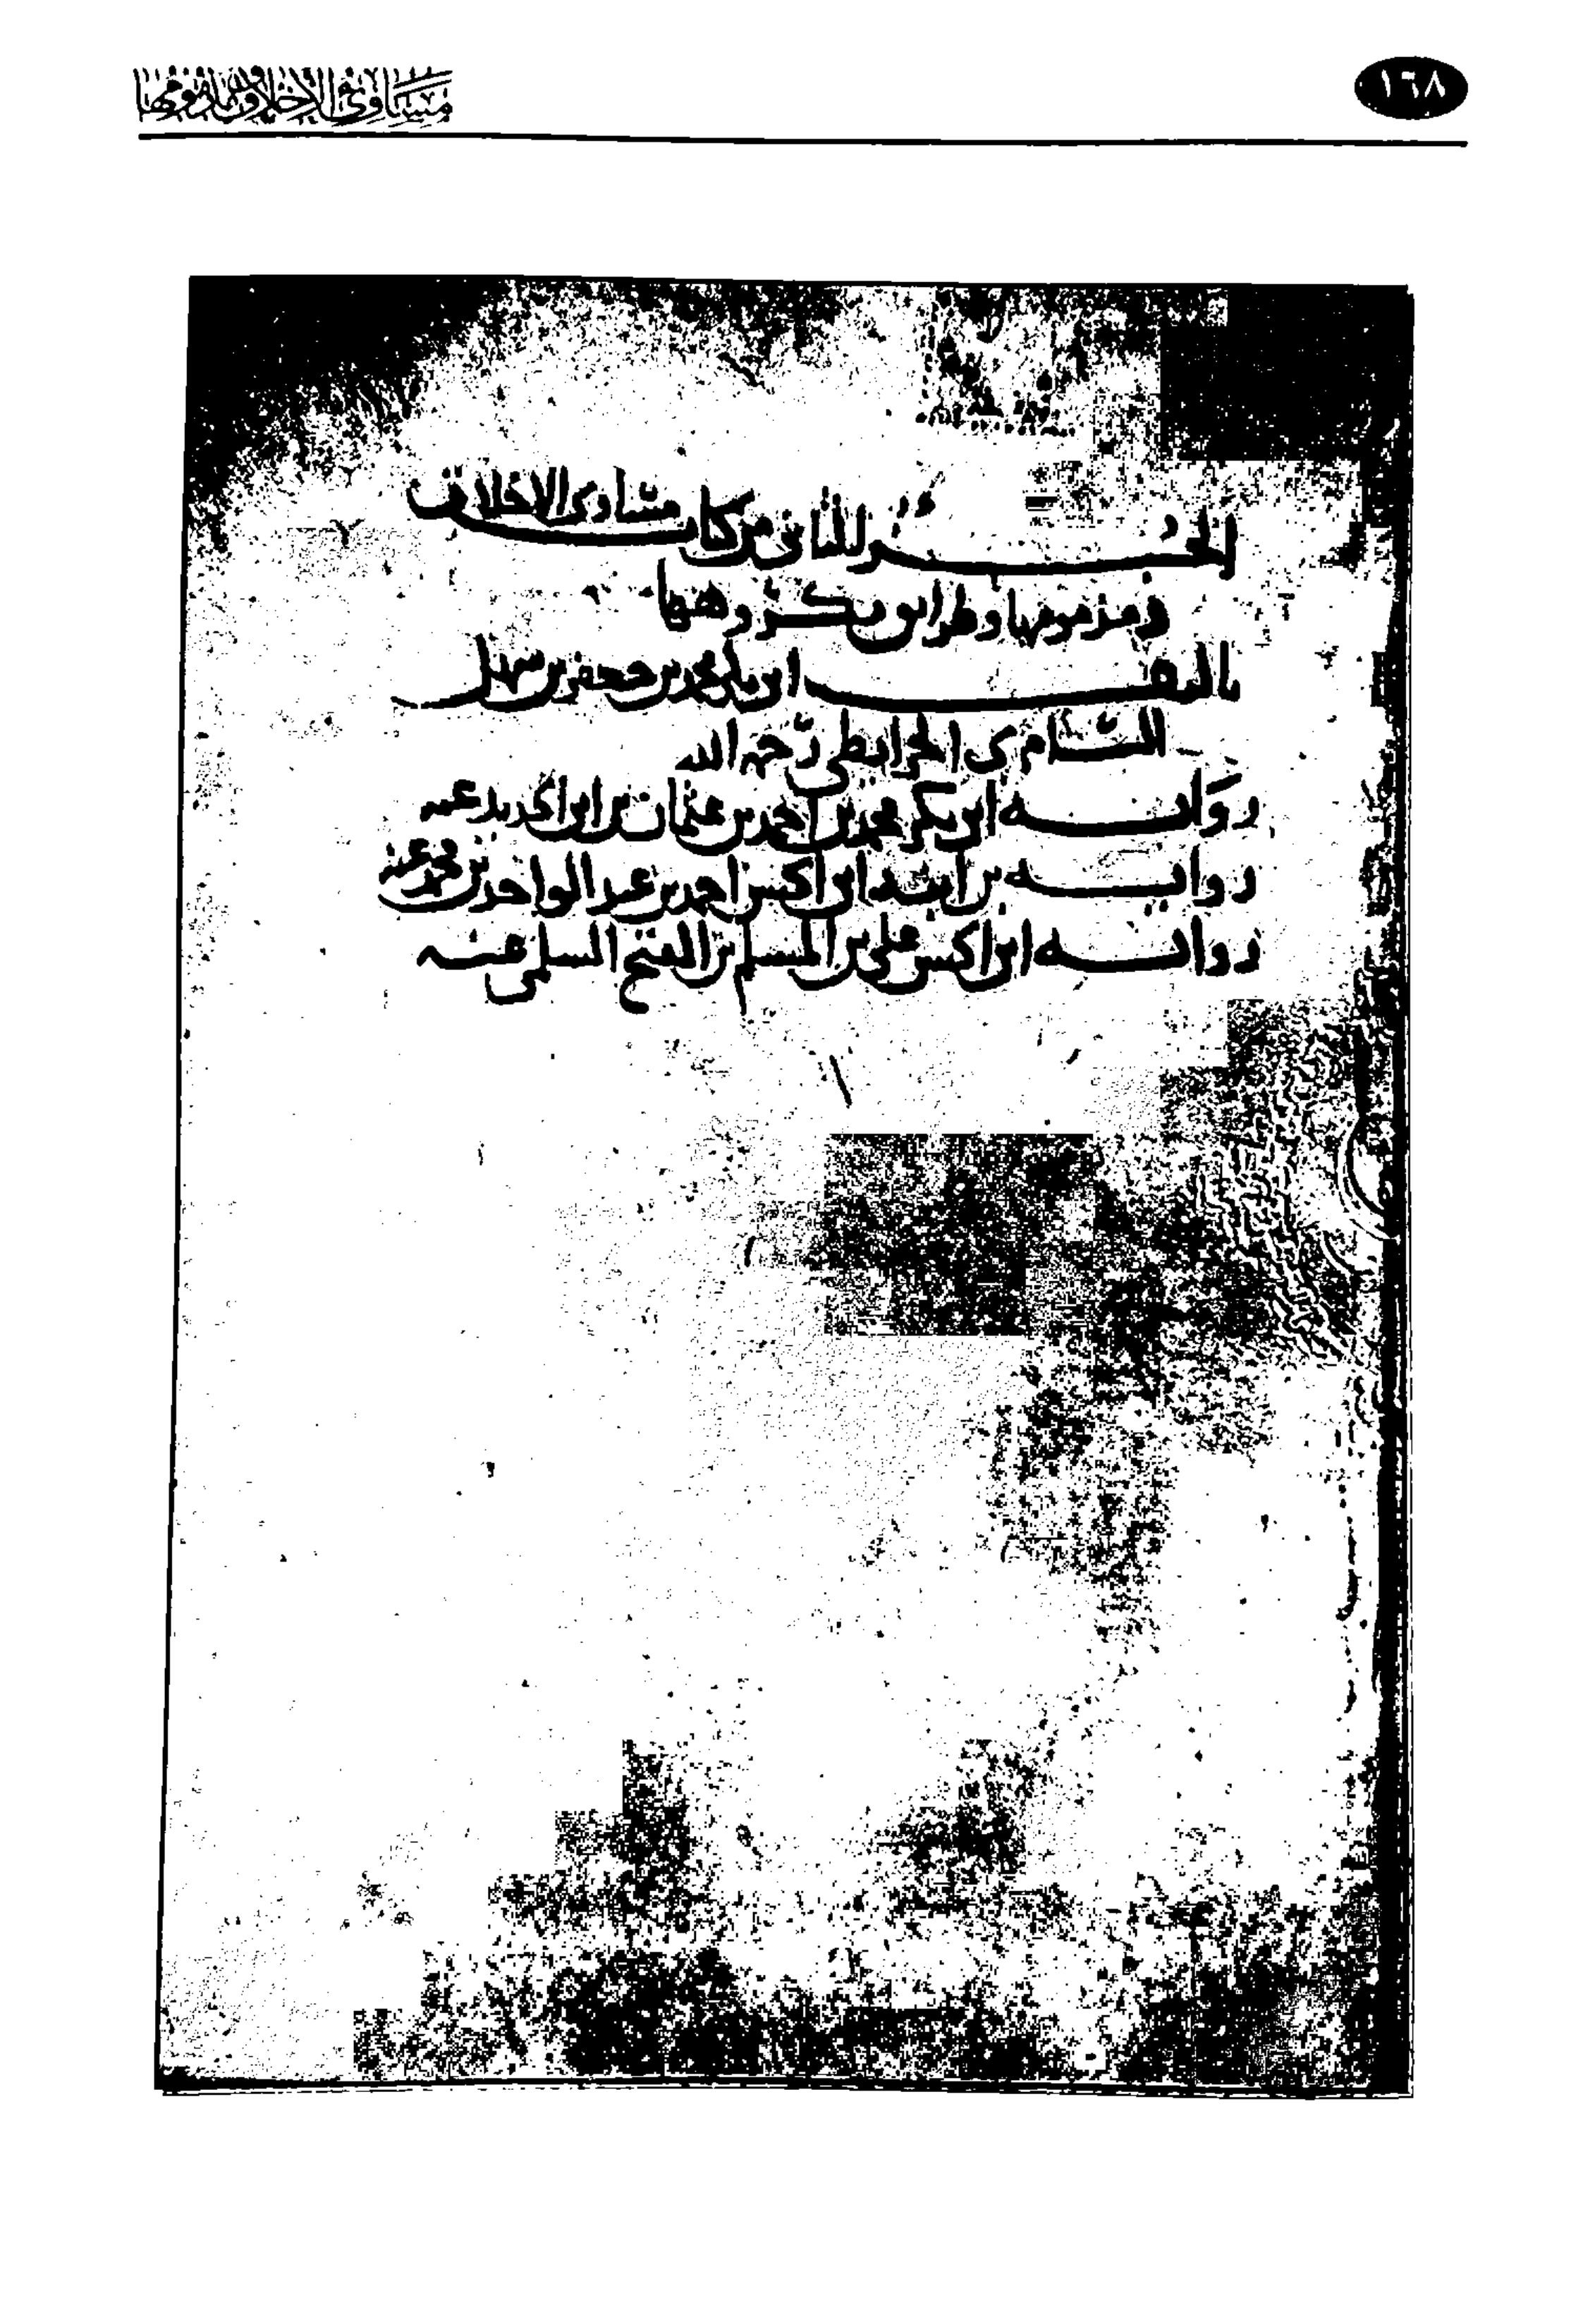 ١٦٨
مساوئ الأخلاق ومذمومها
الجزء الثاني من كتاب مساوى الاخلاق
ومذمومها وطرائق مكروهها
تاليف ابي بكر محمد بن جعفر بن سهل
السامري الخرايطي رحمه الله
رواية ابي بكر محمد بن احمد بن عثمان بن ابي الحديد عنه
رواية بن ابنه ابي الحسن احمد بن عبد الواحد بن محمد عنه
رواية ابي الحسن علي بن المسلم بن الفتح السلمي عنه